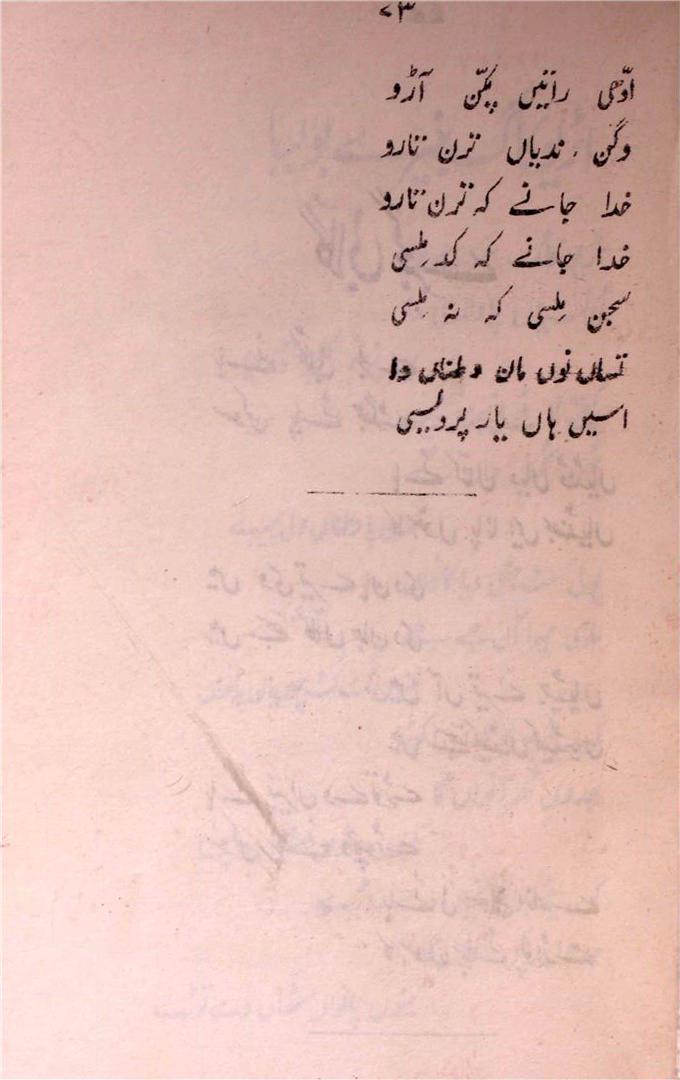 ۷۳
ادّھی راتیں پکّن آڑو
وگن ندیاں ترن تارو
خدا جانے کہ ترن تارو
خدا جانے کہ کد مِلسی
سجن مِلسی کہ نہ مِلسی
تساں نوں مان وطناں دا
اسیں ہاں یار پردیسی